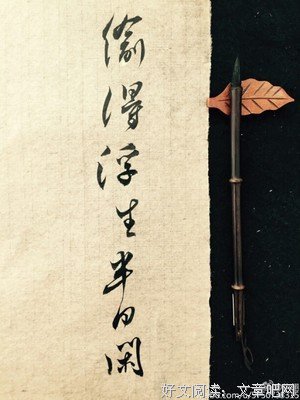 偷得浮生半日閑
好文阅读：文章吧网